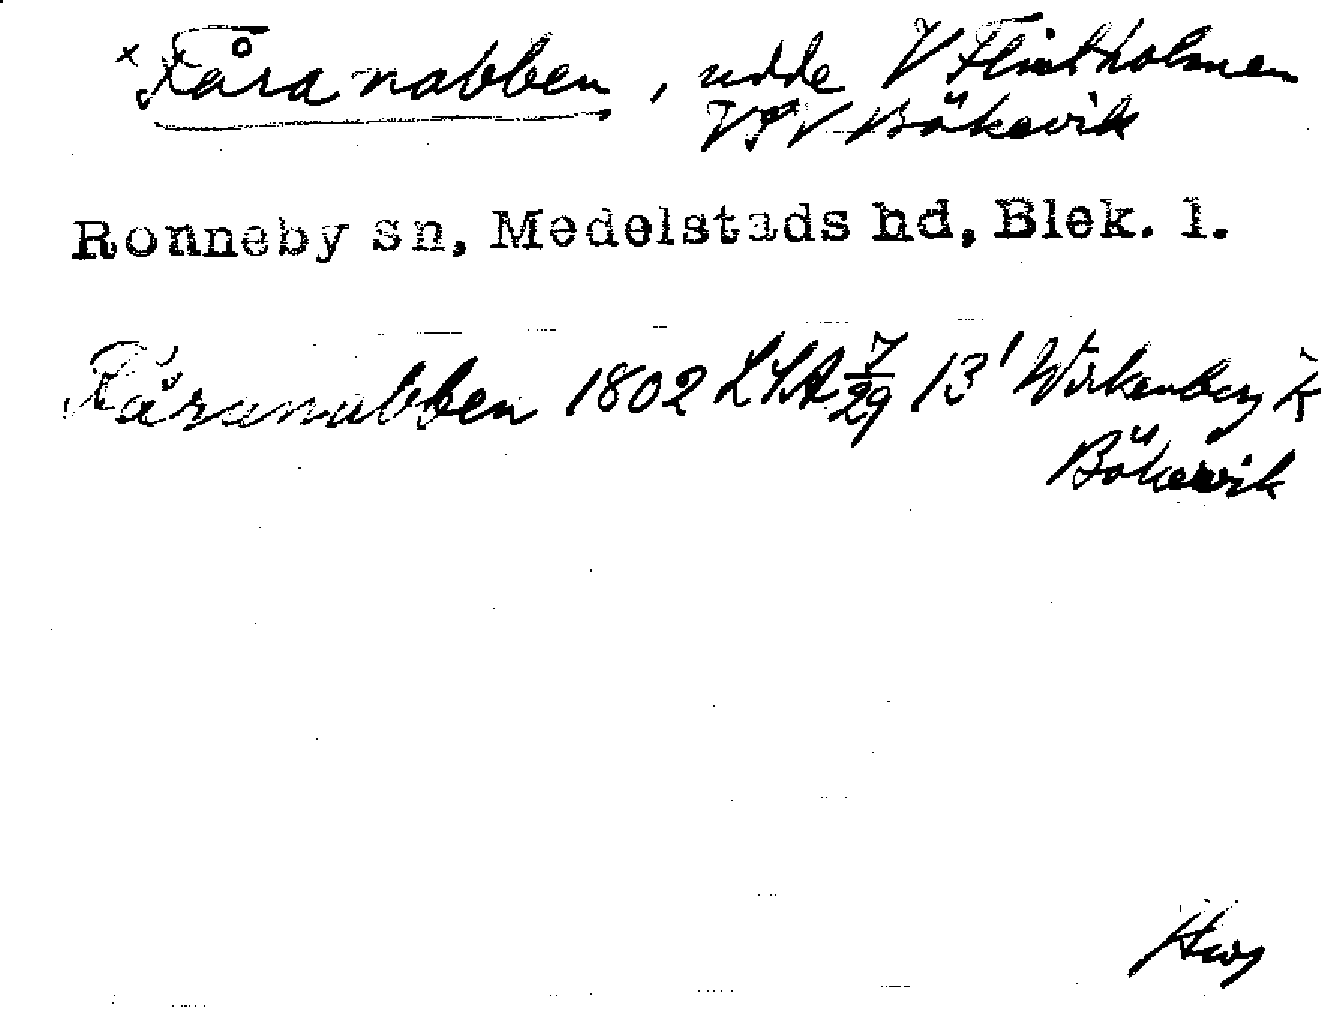 × Fåranabben, udde V Flintholmen
VSV Bökevik
Ronneby sn, Medelstads hd, Blek. l.
Fåranabben 1802 LSA 7/29 13' Wirkenberg k
Bökevik